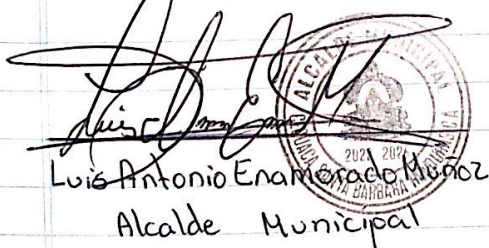 ALCALDE MUNICIPAL
SANTA BARBARA HONDURAS C.A.
Luis Antonio Enamorado Muñoz
Alcalde Municipal